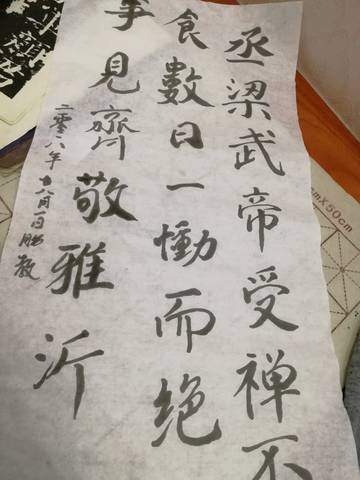 丞梁武帝受禅不
食數日一慟而绝
事見齊敬雅沂
二零一八年八月一日
cm X 50cm